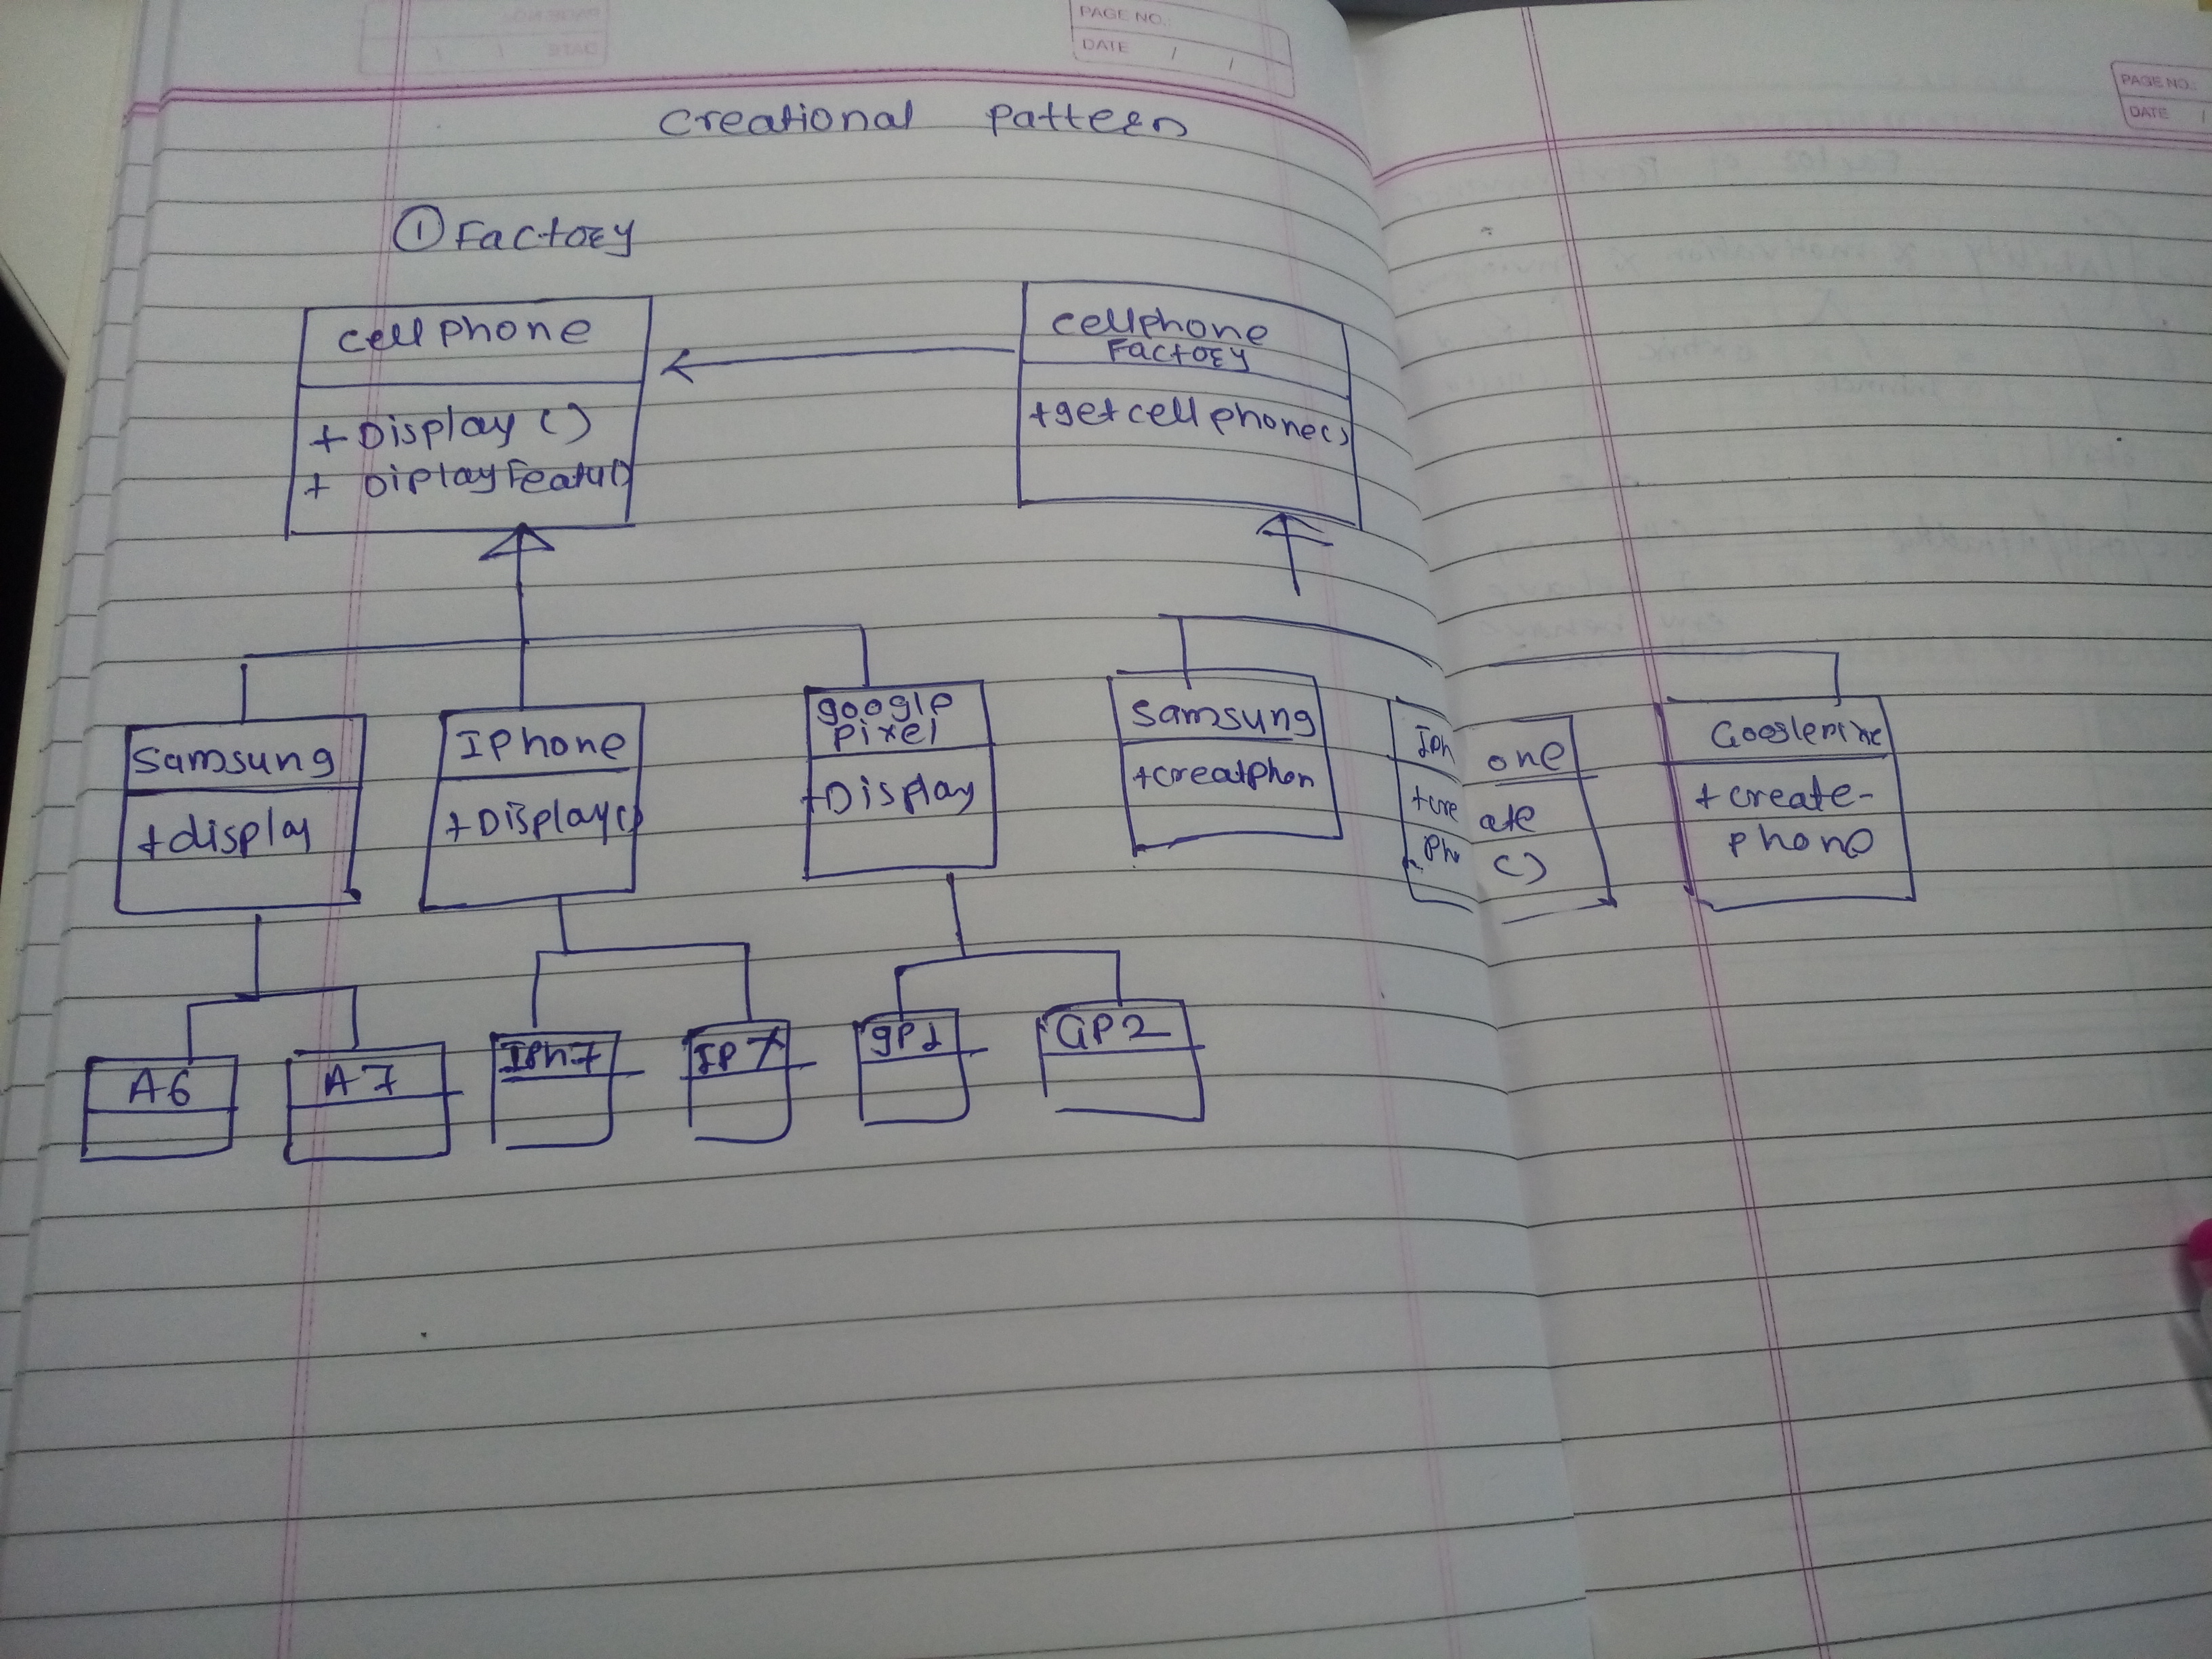 PAGE NO.:
DATE / /
PAGE NO.:
DATE /
creational pattern
① Factory
cellphone
+ Display ()
+ DiplayFeatu()
cellphone
Factory
+getcellphone()
samsung
+display
Iphone
+Display()
google
pixel
+Display
samsung
+creatphon
Iph one
+cre ate
Pho ()
Googlepixe
+ create-
phone
A6
A7
Iph7
IP
gP1
GP2